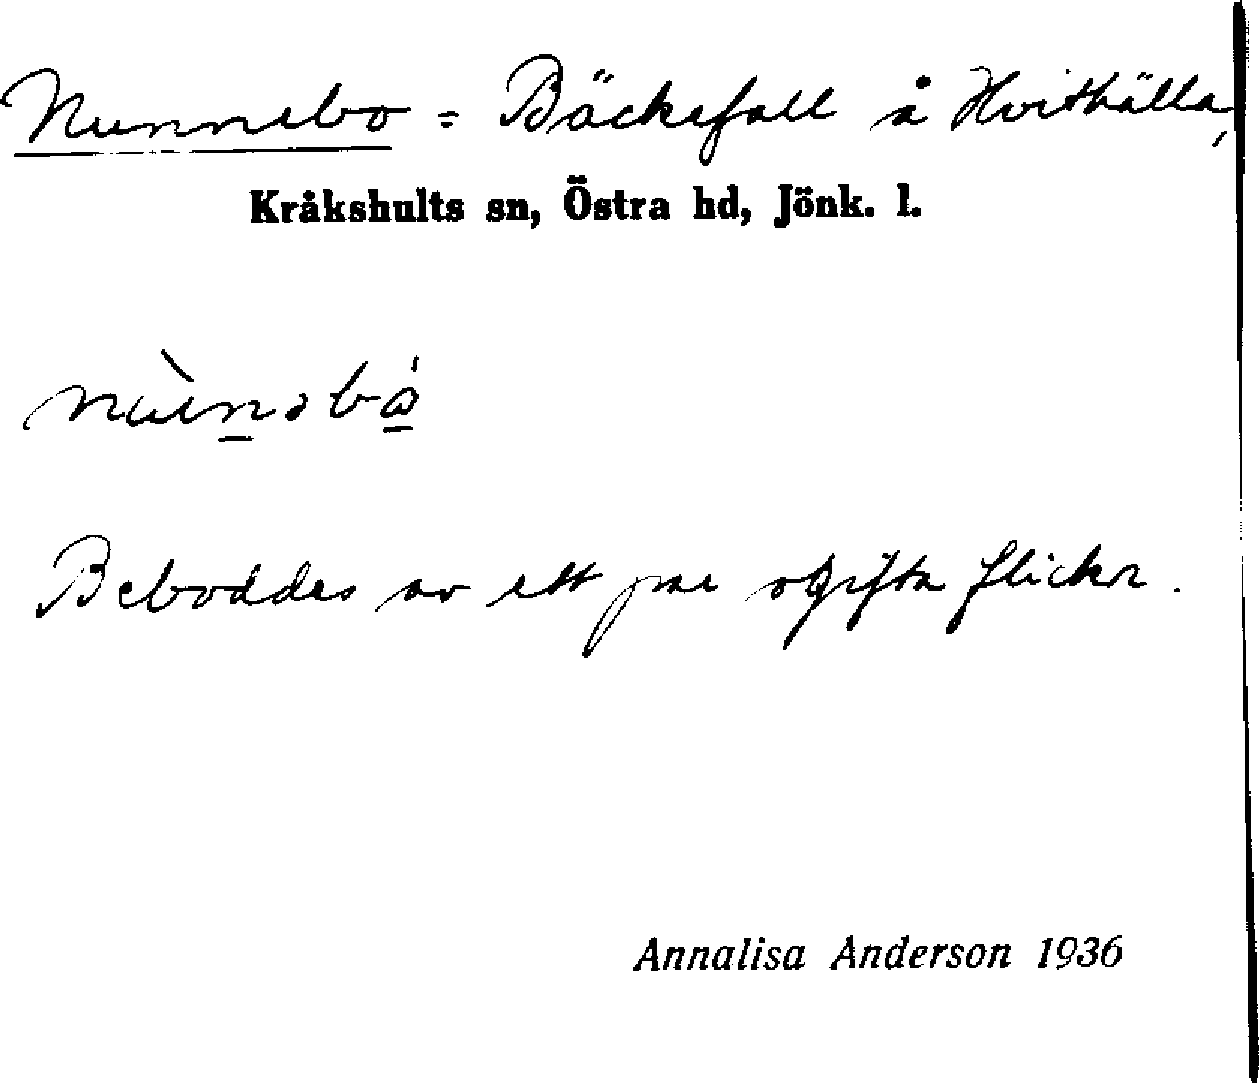 Nunnebo = Bäckefall å Hvithälla,
Kråkshults sn, Östra hd, Jönk. l.
Beboddes av ett par ogifta flickor.
Annalisa Anderson 1936